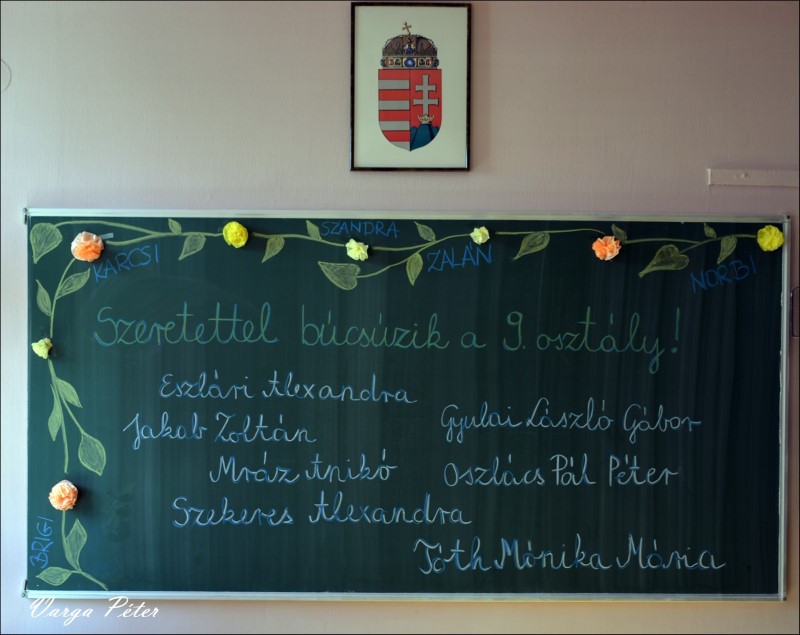 SZANDRA
KARCSI
ZALÁN
NORBI
Szeretettel búcsúzik a 9. osztály!
Eszlári Alexandra
Gyulai László Gábor
Jakab Zoltán
Mráz Anikó
Oszlács Pál Péter
Szekeres Alexandra
Tóth Mónika Mária
BRIGI
Varga Péter